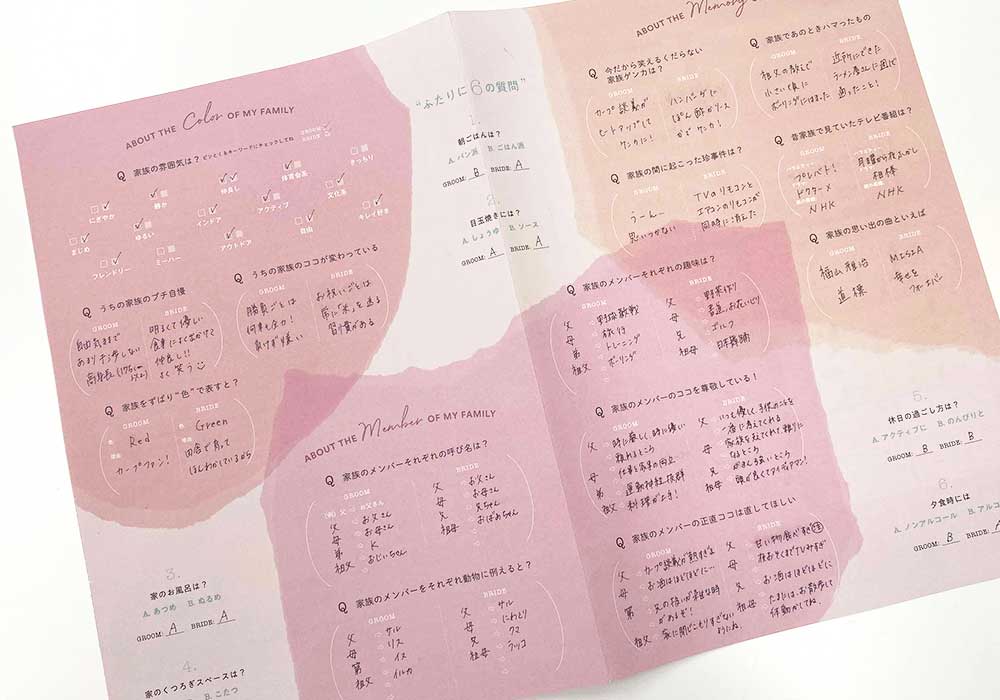 ABOUT THE Color OF MY FAMILY
Q 家族の雰囲気は? ピンとくるキーワードにチェックしてね
GROOM
BRIDE
にぎやか
静か
仲良し
体育会系
きっちり
まじめ
ゆるい
インドア
アクティブ
文化系
フレンドリー
ミーハー
アウトドア
自由
キレイ好き
Q うちの家族のプチ自慢
GROOM
自由気ままで
あまり干渉しない
高身長
BRIDE
明るくて優しい
食事によく出かけて
仲良し!!
よく笑う
Q うちの家族のココが変わっている
GROOM
勝負ごとは
何事も全力!
負けず嫌い
BRIDE
お祝いごとは
常に「米」を送る
習慣がある
Q 家族をずばり“色”で表すと?
GROOM
色 Red
理由 カープファン!
BRIDE
色 Green
理由 田舎で育って
ほんわかしているから
“ふたりに6の質問”
1.
朝ごはんは?
A. パン派 B. ごはん派
GROOM: B BRIDE: A
2.
目玉焼きには?
A. しょうゆ B. ソース
GROOM: A BRIDE: A
3.
家のお風呂は?
A. あつめ B. ぬるめ
GROOM: A BRIDE: A
4.
家のくつろぎスペースは?
B. こたつ
ABOUT THE Member OF MY FAMILY
Q 家族のメンバーそれぞれの呼び名は?
GROOM
(例) 父 お父さん
父 お父さん
母 お母さん
弟 K
祖父 おじいちゃん
BRIDE
父 お父さん
母 お母さん
兄 兄ちゃん
祖母 おばあちゃん
Q 家族のメンバーをそれぞれ動物に例えると?
GROOM
父 サル
母 リス
弟 イヌ
祖父 イルカ
BRIDE
父 サル
母 にわとり
兄 クマ
祖母 ラッコ
ABOUT THE Memory
Q 今だから笑えるくだらない
家族ゲンカは?
GROOM
カープ談義が
ヒートアップして
ケンカに!
BRIDE
ハンバーグに
ぽん酢かソース
かでケンカ!
Q 家族であのときハマったもの
GROOM
祖父の教えで
小さい頃に
ボーリングにはまった
BRIDE
近所にできた
ラーメン屋さんに週で
通ったこと!
Q 家族の間に起こった珍事件は?
GROOM
うーん…
思いつかない
BRIDE
TVのリモコンと
エアコンのリモコンが
同時に消えた
Q 昔家族で見ていたテレビ番組は?
GROOM
プレバト!
ドクターX
NHK
BRIDE
月曜から夜ふかし
相棒
NHK
Q 家族の思い出の曲といえば
GROOM
福山雅治
道標
BRIDE
MISIA
幸せを
フォーエバー
Q 家族のメンバーそれぞれの趣味は?
GROOM
父 野球観戦
母 旅行
弟 トレーニング
祖父 ボーリング
BRIDE
父 野菜作り
母 書道、お花いじり
兄 ゴルフ
祖母 日本舞踊
Q 家族のメンバーのココを尊敬している!
GROOM
父 時に厳しく、時に優しい
頼れるところ
母 仕事と家事の両立
弟 運動神経抜群
祖父 料理が上手!
BRIDE
父 いつも優しく、子供のことを
一番に考えてくれる
母 家族を支えてくれ、頼りに
なるところ
兄 がまん強いところ
祖母 頭が良くてアイディアマン!
Q 家族のメンバーの正直ココは直してほしい
GROOM
父 カープ談義が熱すぎる
母 お酒はほどほどに…
弟 兄の扱いが雑な時
があるぞ!
祖父 家に閉じこもりすぎない
ようにね。
BRIDE
父 甘い物食べすぎ注
母 夜おそくまでTVみすぎ
兄 お酒はほどほどに
祖母 たまには、お散歩して
体動かしてね。
5.
休日の過ごし方は?
A. アクティブに B. のんびりと
GROOM: B BRIDE: B
6.
夕食時には
A. ノンアルコール B. アルコ
GROOM: B BRIDE: A